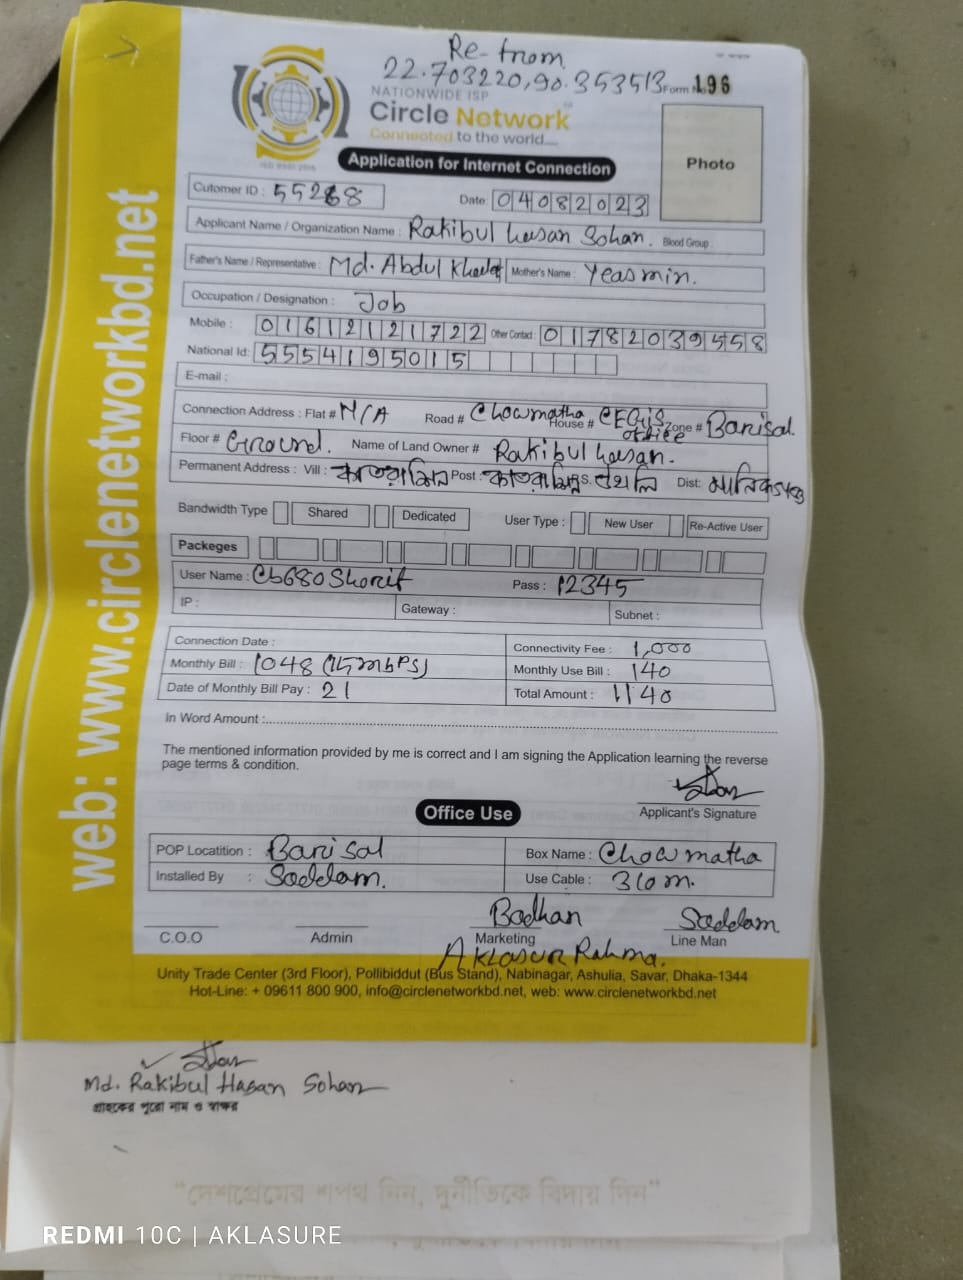 Re-from
22.703220,90.353513 Form No 196
NATIONWIDE ISP
Circle Network
Connected to the world....
Application for Internet Connection
Photo
Cutomer ID : 55268 Date: 04082023
Applicant Name / Organization Name : Rakibul hasan Sohan. Blood Group :
Father's Name / Representative : Md. Abdul Mother's Name : Yeasmin.
Occupation / Designation : Job
Mobile : 01612121722 Other Contact : 01782039558
National Id: 5554195015
E-mail :
Connection Address : Flat # N/A Road # Chowmatha House # CEGIS office Zone # Barisal.
Floor # Ground. Name of Land Owner # Rakibul hasan.
Permanent Address : Vill : Post : P.S. Dist:
Bandwidth Type Shared Dedicated User Type : New User Re-Active User
Packeges
User Name : Cb680Shorif Pass : 12345
IP : Gateway : Subnet :
Connection Date : Connectivity Fee : 1,000
Monthly Bill : 1048 (15mbPS) Monthly Use Bill : 140
Date of Monthly Bill Pay : 21 Total Amount : 1140
In Word Amount :
The mentioned information provided by me is correct and I am signing the Application learning the reverse
page terms & condition.
Applicant's Signature
Office Use
POP Locatition : Barisal Box Name : Chowmatha
Installed By : Saddam. Use Cable : 310m.
Badhan Saddam
C.O.O Admin Marketing Line Man
AKLASUR Rahma.
Unity Trade Center (3rd Floor), Pollibiddut (Bus Stand), Nabinagar, Ashulia, Savar, Dhaka-1344
Hot-Line: + 09611 800 900, info@circlenetworkbd.net, web: www.circlenetworkbd.net
web: www.circlenetworkbd.net
Md. Rakibul Hasan Sohan
গ্রাহকের পুরো নাম ও স্বাক্ষর
“দেশপ্রেমের শপথ নিন, দুর্নীতিকে বিদায় দিন”
REDMI 10C | AKLASURE